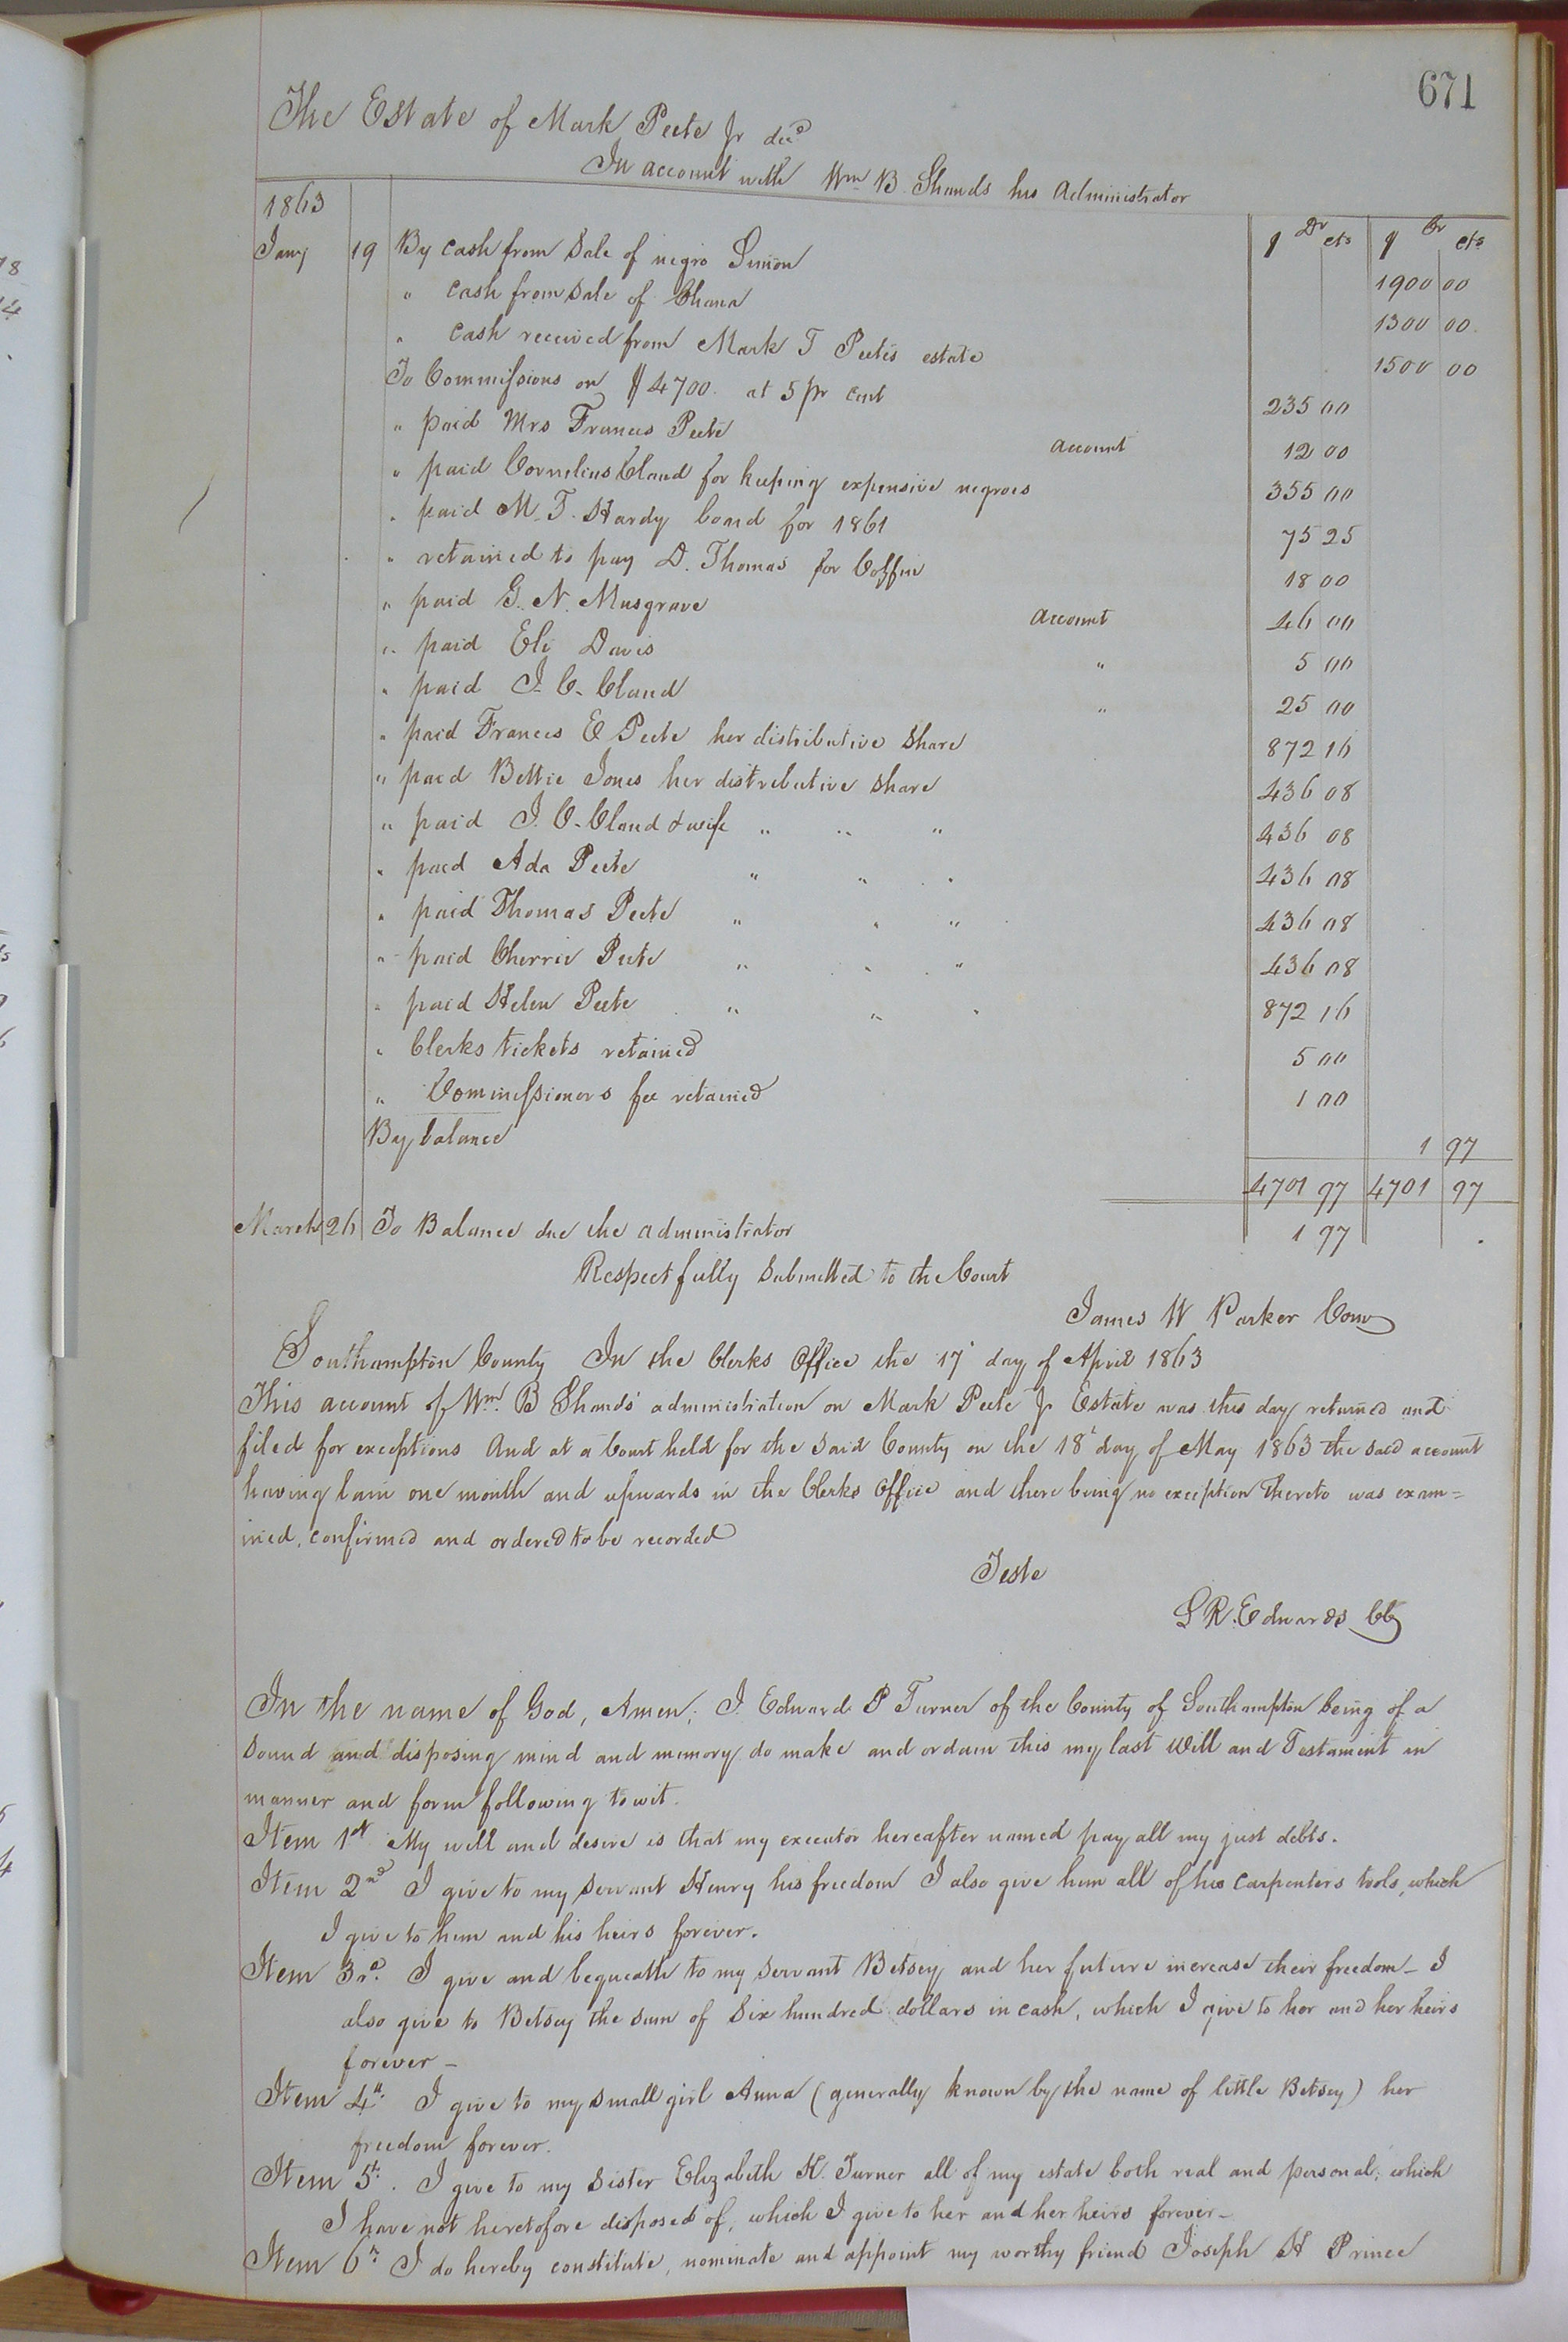 671
The Estate of Mark Peete Jr decd
In account with Wm B. Shands his Administrator
1863
$ Dr cts $ Cr cts
Jany 19 By cash from Sale of negro Simon 1900 00
" cash from Sale of Chana 1300 00
" cash received from Mark T Peete's estate 1500 00
To Commissions on $4700. at 5 pr cent 235 00
" paid Mrs Frances Peete account 12 00
" paid Cornelius Cland for keeping expensive negroes 355 00
" paid M. T. Hardy bond for 1861 75 25
" retained to pay D. Thomas for Coffin 18 00
" paid G. N. Musgrave Account 46 00
" paid Eli Davis " 5 00
" paid J. C. Cland " 25 00
" paid Frances E Peete her distributive share 872 16
" paid Bettie Jones her distributive share 436 08
" paid J. C. Cland & wife " " " 436 08
" paid Ada Peete " " " 436 08
" paid Thomas Peete " " " 436 08
" paid Cherrie Peete " " " 436 08
" paid Helen Peete " " " 872 16
" Clerks tickets retained 5 00
" Commissioners fee retained 1 00
By balance 1 97
4701 97 4701 97
March 26 To Balance due the administrator 1 97
Respectfully Submitted to the Court
James W Parker Com
Southampton County In the Clerks Office the 17 day of April 1863
This account of Wm. B Shands' administration on Mark Peete Jr Estate was this day returned and
filed for exceptions And at a Court held for the said County on the 18 day of May 1863 the said account
having lain one month and upwards in the Clerks Office and there being no exception thereto was exam=
ined, confirmed and ordered to be recorded
Teste
L R. Edwards Clk
In the name of God, Amen, I Edward P Turner of the County of Southampton being of a
Sound and disposing mind and memory do make and ordain this my last Will and Testament in
manner and form following to wit.
Item 1st My will and desire is that my executor hereafter named pay all my just debts.
Item 2nd I give to my servant Henry his freedom I also give him all of his Carpenters tools, which
I give to him and his heirs forever.
Item 3rd. I give and bequeath to my servant Betsey and her future increase their freedom - I
also give to Betsey the sum of Six hundred dollars in cash, which I give to her and her heirs
forever -
Item 4th. I give to my small girl Anna (generally known by the name of little Betsey) her
freedom forever.
Item 5th. I give to my Sister Elizabeth K. Turner all of my estate both real and personal, which
I have not heretofore disposed of, which I give to her and her heirs forever -
Item 6th I do hereby constitute, nominate and appoint my worthy friend Joseph H Prince